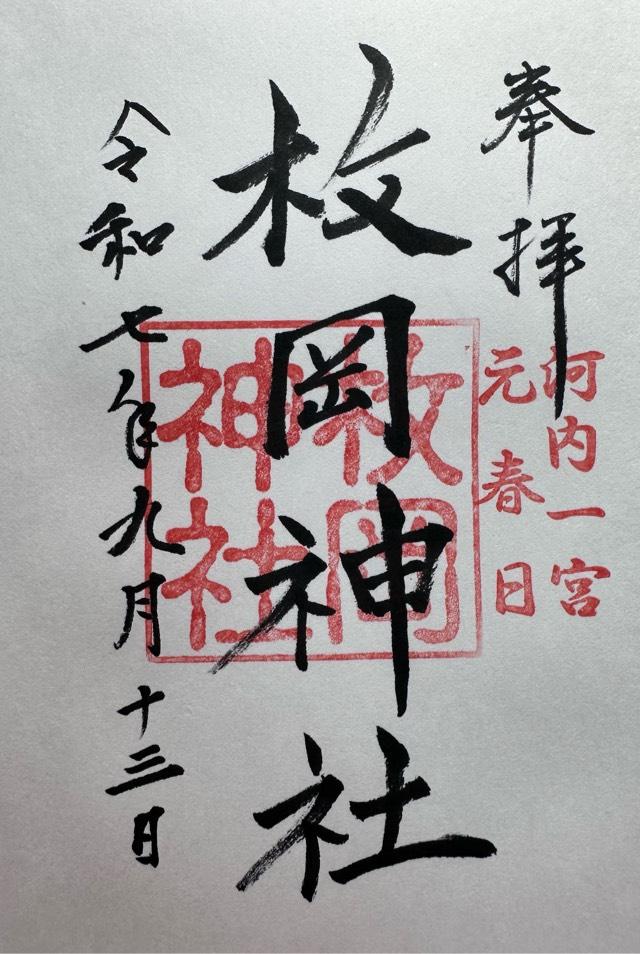 奉拝
河内一宮
元春日
枚岡神社
枚岡
神社
令和七年九月十三日